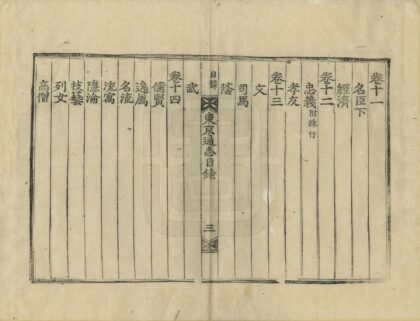 卷十一
名臣下
經濟
卷十二
忠義附錄行
孝友
卷十三
文
司馬
蔭
目錄
東京通志目錄
三
武
卷十四
儒賢
逸薦
名流
流寓
隱淪
技藝
列女
高僧